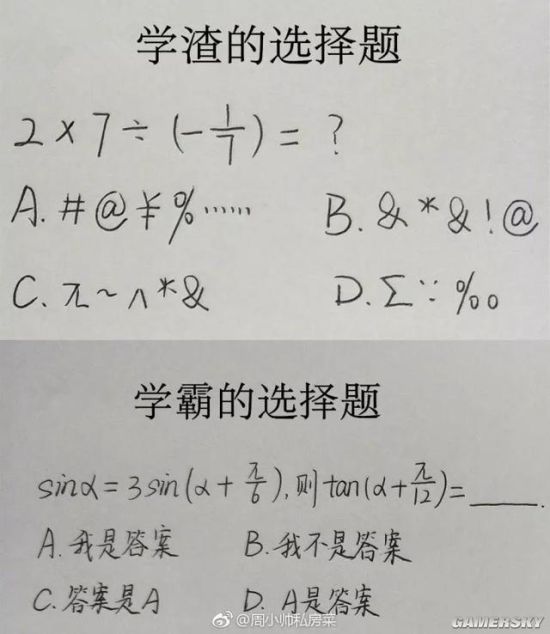 学渣的选择题
2×7÷(-1/7)=?
A.#@¥%…… B.&*&!@
C.π~∧*& D.Σ∵‰
学霸的选择题
sinα=3sin(α+π/6),则tan(α+π/12)=____.
A.我是答案 B.我不是答案
C.答案是A D.A是答案
@周小帅私房菜
GAMERSKY